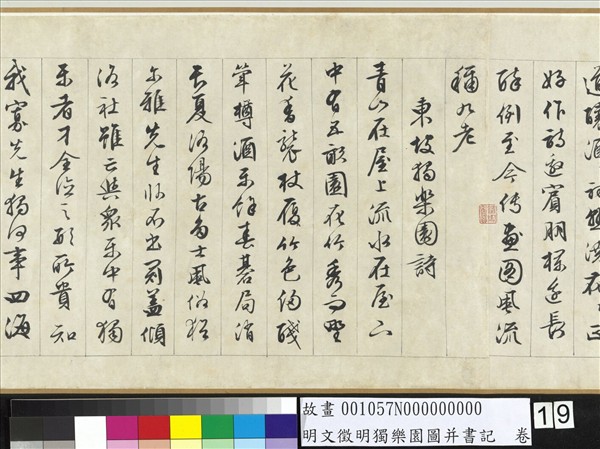 道釀酒酒初熟澆花花正
好作詩邀賓朋欄邊長
醉倒至今傳畫圖風流
稱九老
東坡獨樂園詩
青山在屋上流水在屋下
中有五畝園花竹秀而野
花香襲杖屨竹色侵醆
斝樽酒樂餘春碁局消
長夏洛陽古多士風俗猶
爾雅先生臥不出冠蓋傾
洛社雖云與眾樂中有獨
樂者才全德不形所貴知
我寡先生獨何事四海
故畫 001057N000000000
明文徵明獨樂園圖并書記 卷
19